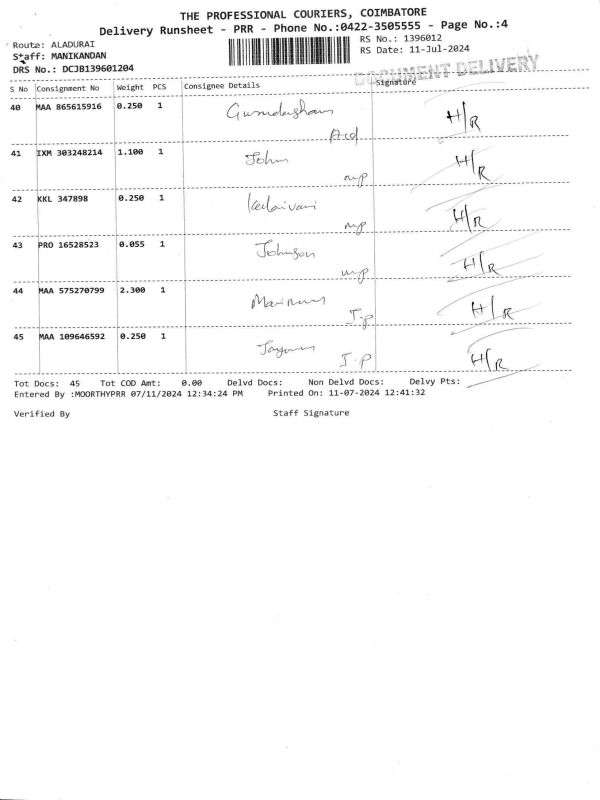 THE PROFESSIONAL COURIERS, COIMBATORE
Delivery Runsheet - PRR - Phone No.:0422-3505555 - Page No.:4
Route: ALADURAI
RS No.: 1396012
Staff: MANIKANDAN
RS Date: 11-Jul-2024
DRS No.: DCJB139601204
DOCUMENT DELIVERY
S No Consignment No Weight PCS Consignee Details Signature
40 MAA 865615916 0.250 1 H/R
41 IXM 303248214 1.100 1 John H/R
mp
42 KKL 347898 0.250 1 Kalaivani H/R
mp
43 PRO 16528523 0.055 1 Johnson H/R
mp
44 MAA 575270799 2.300 1 H/R
I.p
45 MAA 109646592 0.250 1 H/R
I.p
Tot Docs: 45 Tot COD Amt: 0.00 Delvd Docs: Non Delvd Docs: Delvy Pts:
Entered By :MOORTHYPRR 07/11/2024 12:34:24 PM Printed On: 11-07-2024 12:41:32
Verified By Staff Signature